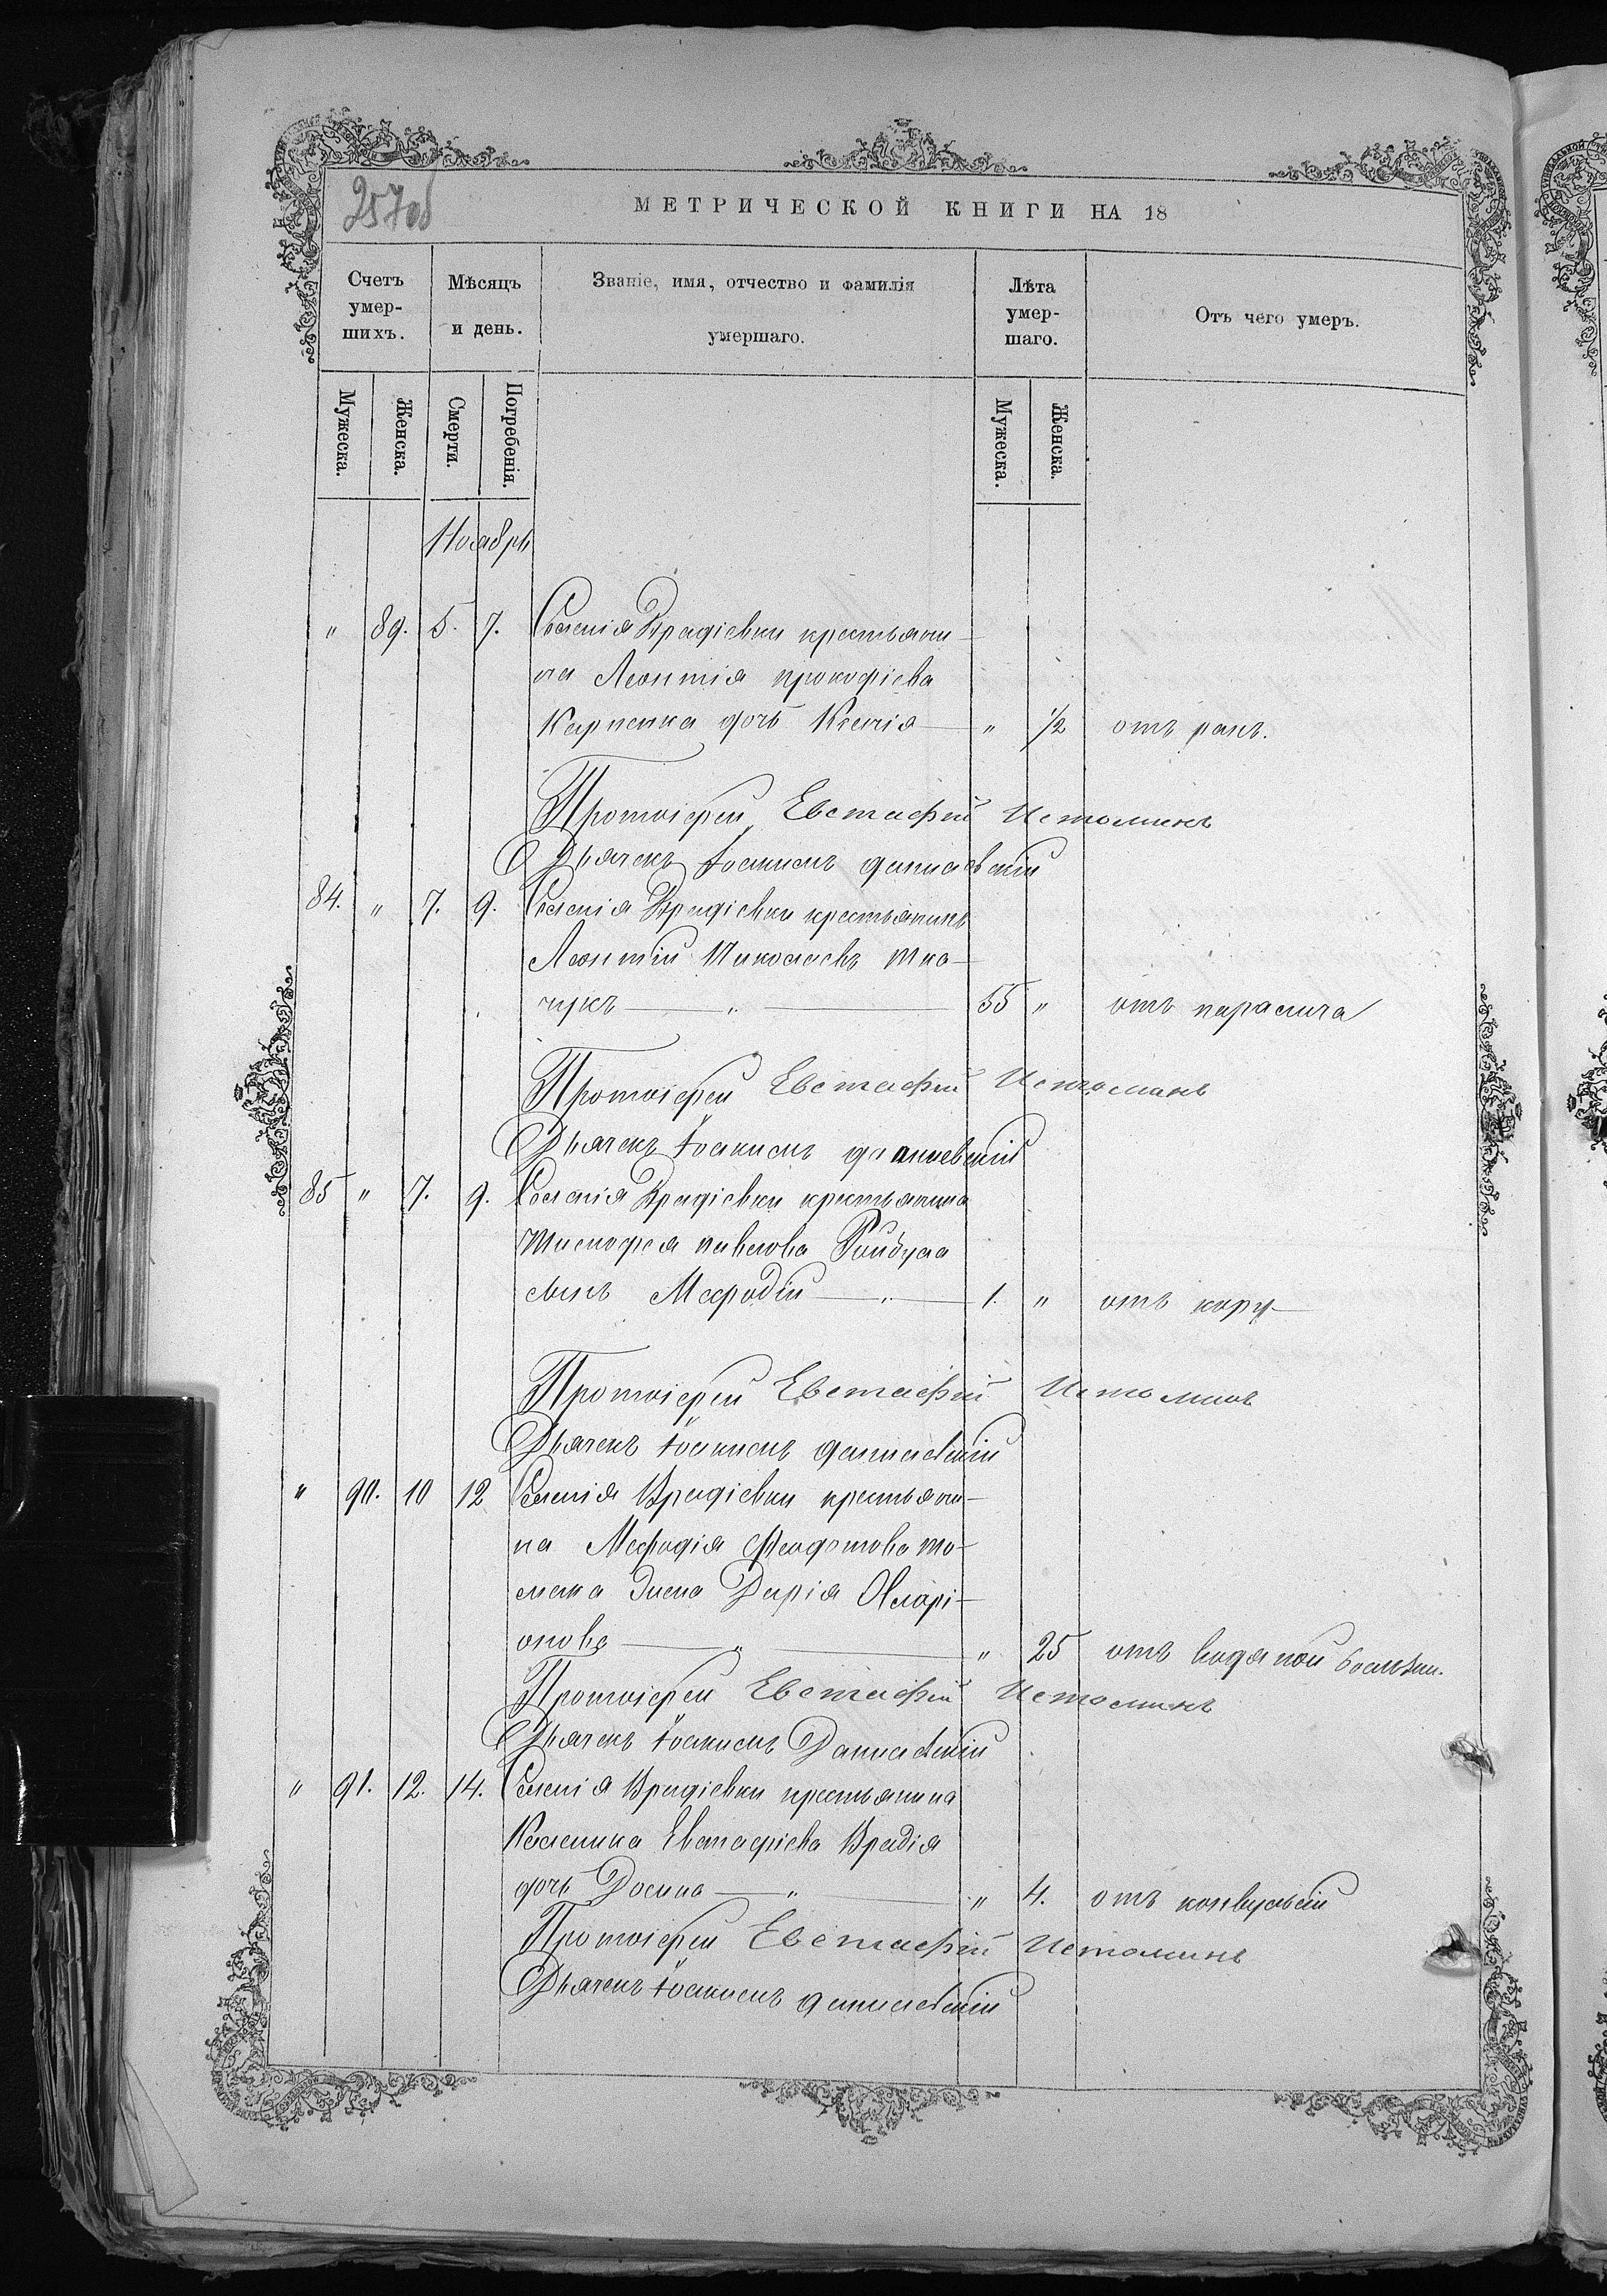 257 об
МЕТРИЧЕСКОЙ КНИГИ НА 18
Счетъ умер-шихъ.
Мѣсяцъ и день.
Званіе, имя, отчество и фамилія умершаго.
Лѣта умер-шаго.
Отъ чего умеръ.
Мужеска. Женска. Смерти. Погребенія. Мужеска. Женска.
Ноябрь
" 89. 5. 7. Селенія Врадіевки крестьяни-
на Леонтія Прокофіева
Карпенка дочь Ксенія " 1/2 отъ ранъ.
Протоіерей Евстафій Истоминъ
Дьячекъ Іоакимъ Данилевскій
84. " 7. 9. Селенія Врадіевки крестьянинъ
Леонтій Николаевъ Тка-
чукъ — " — 55 " отъ паралича
Протоіерей Евстафій Истоминъ
Дьячекъ Іоакимъ Данилевскій
85 " 7. 9. Селенія Врадіевки крестьянина
Тимофея Павлова
сынъ Мефодій — " — 1. " отъ кору
Протоіерей Евстафій Истоминъ
Дьячекъ Іоакимъ Данилевскій
" 90. 10 12 Селенія Врадіевки крестьяни-
на Мефодія Феодотова То-
мака жена Дарія Иларі-
онова — " — " 25 отъ водяной болѣзни.
Протоіерей Евстафій Истоминъ
Дьячекъ Іоакимъ Данилевскій
" 91. 12. 14. Селенія Врадіевки крестьянина
Калиника Евстафіева Врадія
дочь Домна — " — " 4. отъ конвульсій
Протоіерей Евстафій Истоминъ
Дьячекъ Іоакимъ Данилевскій